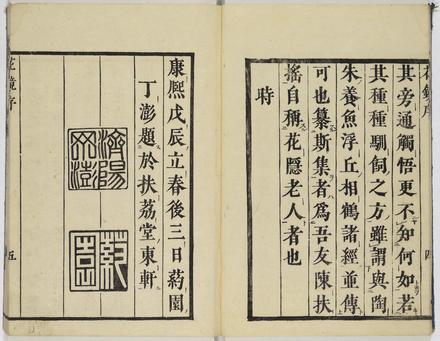 花鏡序
四
其旁通觸悟更不知何如若
其種種馴飼之方雖謂與陶
朱養魚浮丘相鶴諸經並傳
可也纂斯集者爲吾友陳扶
搖自稱花隱老人者也
時
康熙戊辰立春後三日葯園
丁澎題於扶荔堂東軒
花鏡序
五